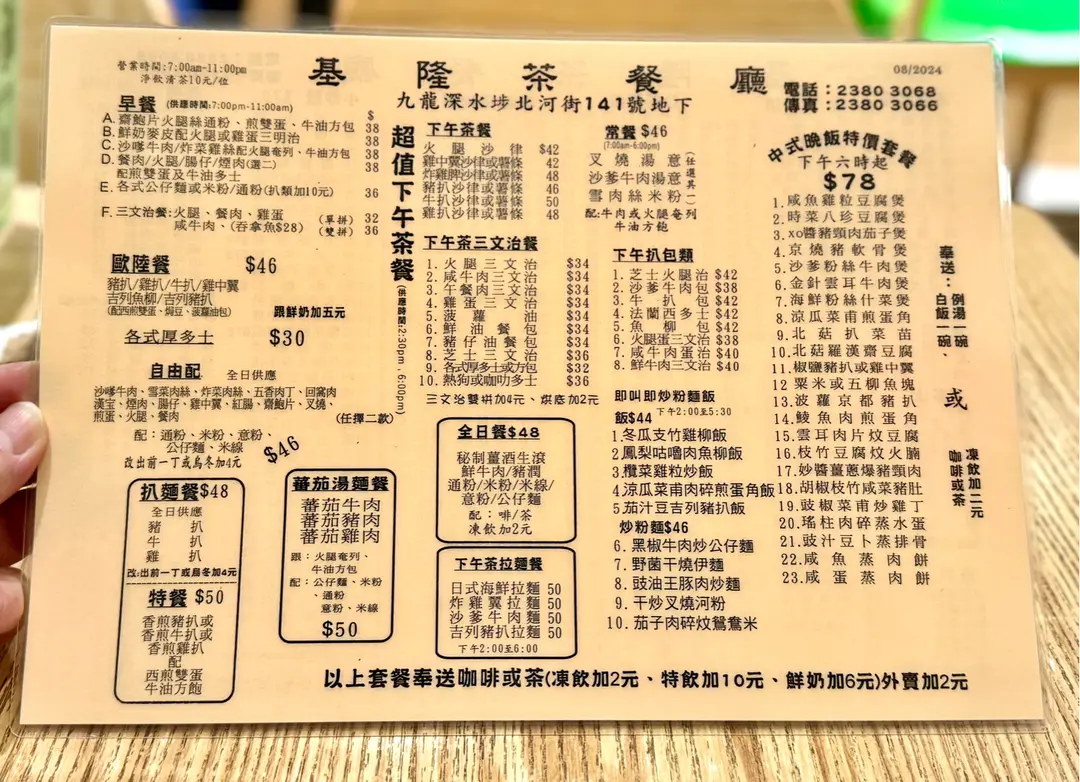 營業時間:7:00am-11:00pm
淨飲清茶10元/位
基隆茶餐廳
九龍深水埗北河街141號地下
08/2024
電話：2380 3068
傳真：2380 3066
早餐 (供應時間:7:00pm-11:00am)
$
A.齋鮑片火腿絲通粉、煎雙蛋、牛油方包 38
B.鮮奶麥皮配火腿或雞蛋三明治 38
C.沙嗲牛肉/炸菜雞絲配火腿奄列、牛油方包 38
D.餐肉/火腿/腸仔/煙肉(選二)
配煎雙蛋及牛油多士 38
E.各式公仔麵或米粉/通粉(扒類加10元) 36
F.三文治餐:火腿、餐肉、雞蛋 (單拼) 32
咸牛肉、(吞拿魚$28) (雙拼) 36
歐陸餐 $46
豬扒/雞扒/牛扒/雞中翼
吉列魚柳/吉列豬扒
(配西煎雙蛋、焗豆、菠蘿油包)
跟鮮奶加五元
各式厚多士 $30
自由配 全日供應
沙嗲牛肉、雪菜肉絲、炸菜肉絲、五香肉丁、回窩肉
漢宝、煙肉、腸仔、雞中翼、紅腸、齋鮑片、叉燒、
煎蛋、火腿、餐肉 (任擇二款)
配：通粉、米粉、意粉、
公仔麵、米線
改出前一丁或烏冬加4元
$46
扒麵餐$48
全日供應
豬扒
牛扒
雞扒
改:出前一丁或烏冬加4元
特餐 $50
香煎豬扒或
香煎牛扒或
香煎雞扒
配
西煎雙蛋
牛油方飽
蕃茄湯麵餐
蕃茄牛肉
蕃茄豬肉
蕃茄雞肉
跟：火腿奄列、
牛油方包
配：公仔麵、米粉
、通粉
意粉、米線
$50
超值下午茶餐
(供應時間:2:30pm．6:00pm)
下午茶餐
火腿沙律 $42
雞中翼沙律或薯條 42
炸雞髀沙律或薯條 48
豬扒沙律或薯條 46
牛扒沙律或薯條 50
雞扒沙律或薯條 48
下午茶三文治餐
1.火腿三文治 $34
2.咸牛肉三文治 $34
3.午餐肉三文治 $34
4.雞蛋三文治 $34
5.菠蘿油 $34
6.鮮油餐包 $34
7.豬仔油餐包 $34
8.芝士三文治 $36
9.各式厚多士或方包 $32
10.熱狗或咖叻多士 $36
三文治雙拼加4元、烘底加2元
全日餐$48
秘制薑酒生滾
鮮牛肉/豬潤
通粉/米粉/米線/
意粉/公仔麵
配：啡/茶
凍飲加2元
下午茶拉麵餐
日式海鮮拉麵 50
炸雞翼拉麵 50
沙爹牛肉麵 50
吉列豬扒拉麵 50
下午2:00至6:00
常餐 $46
(7:00am-6:00pm)
叉燒湯意
沙爹牛肉湯意
雪肉絲米粉
(任選其一)
配:牛肉或火腿奄列
牛油方飽
下午扒包類
1.芝士火腿治 $42
2.沙爹牛肉包 $38
3.牛扒包 $42
4.法蘭西多士 $42
5.魚柳包 $42
6.火腿蛋三文治 $38
7.咸牛肉蛋治 $40
8.鮮牛肉三文治 $40
即叫即炒粉麵飯
飯$44 下午2:00至5:30
1.冬瓜支竹雞柳飯
2.鳳梨咕嚕肉魚柳飯
3.欖菜雞粒炒飯
4.涼瓜菜甫肉碎煎蛋角飯
5.茄汁豆吉列豬扒飯
炒粉麵$46
6.黑椒牛肉炒公仔麵
7.野菌干燒伊麵
8.豉油王豚肉炒麵
9.干炒叉燒河粉
10.茄子肉碎炆鴛鴦米
中式晚飯特價套餐
下午六時起
$78
1.咸魚雞粒豆腐煲
2.時菜八珍豆腐煲
3.xo醬豬頸肉茄子煲
4.京燒豬軟骨煲
5.沙爹粉絲牛肉煲
6.金針雲耳牛肉煲
7.海鮮粉絲什菜煲
8.涼瓜菜甫煎蛋角
9.北菇扒菜苗
10.北菇羅漢齋豆腐
11.椒鹽豬扒或雞中翼
12粟米或五柳魚塊
13.菠蘿京都豬扒
14.鯪魚肉煎蛋角
15.雲耳肉片炆豆腐
16.枝竹豆腐炆火腩
17.妙醬薑蔥爆豬頸肉
18.胡椒枝竹咸菜豬肚
19.豉椒菜甫炒雞丁
20.瑤柱肉碎蒸水蛋
21.豉汁豆卜蒸排骨
22.咸魚蒸肉餅
23.咸蛋蒸肉餅
奉送：例湯一碗、
白飯一碗、
或
凍飲加二元
咖啡或茶
以上套餐奉送咖啡或茶(凍飲加2元、特飲加10元、鮮奶加6元)外賣加2元